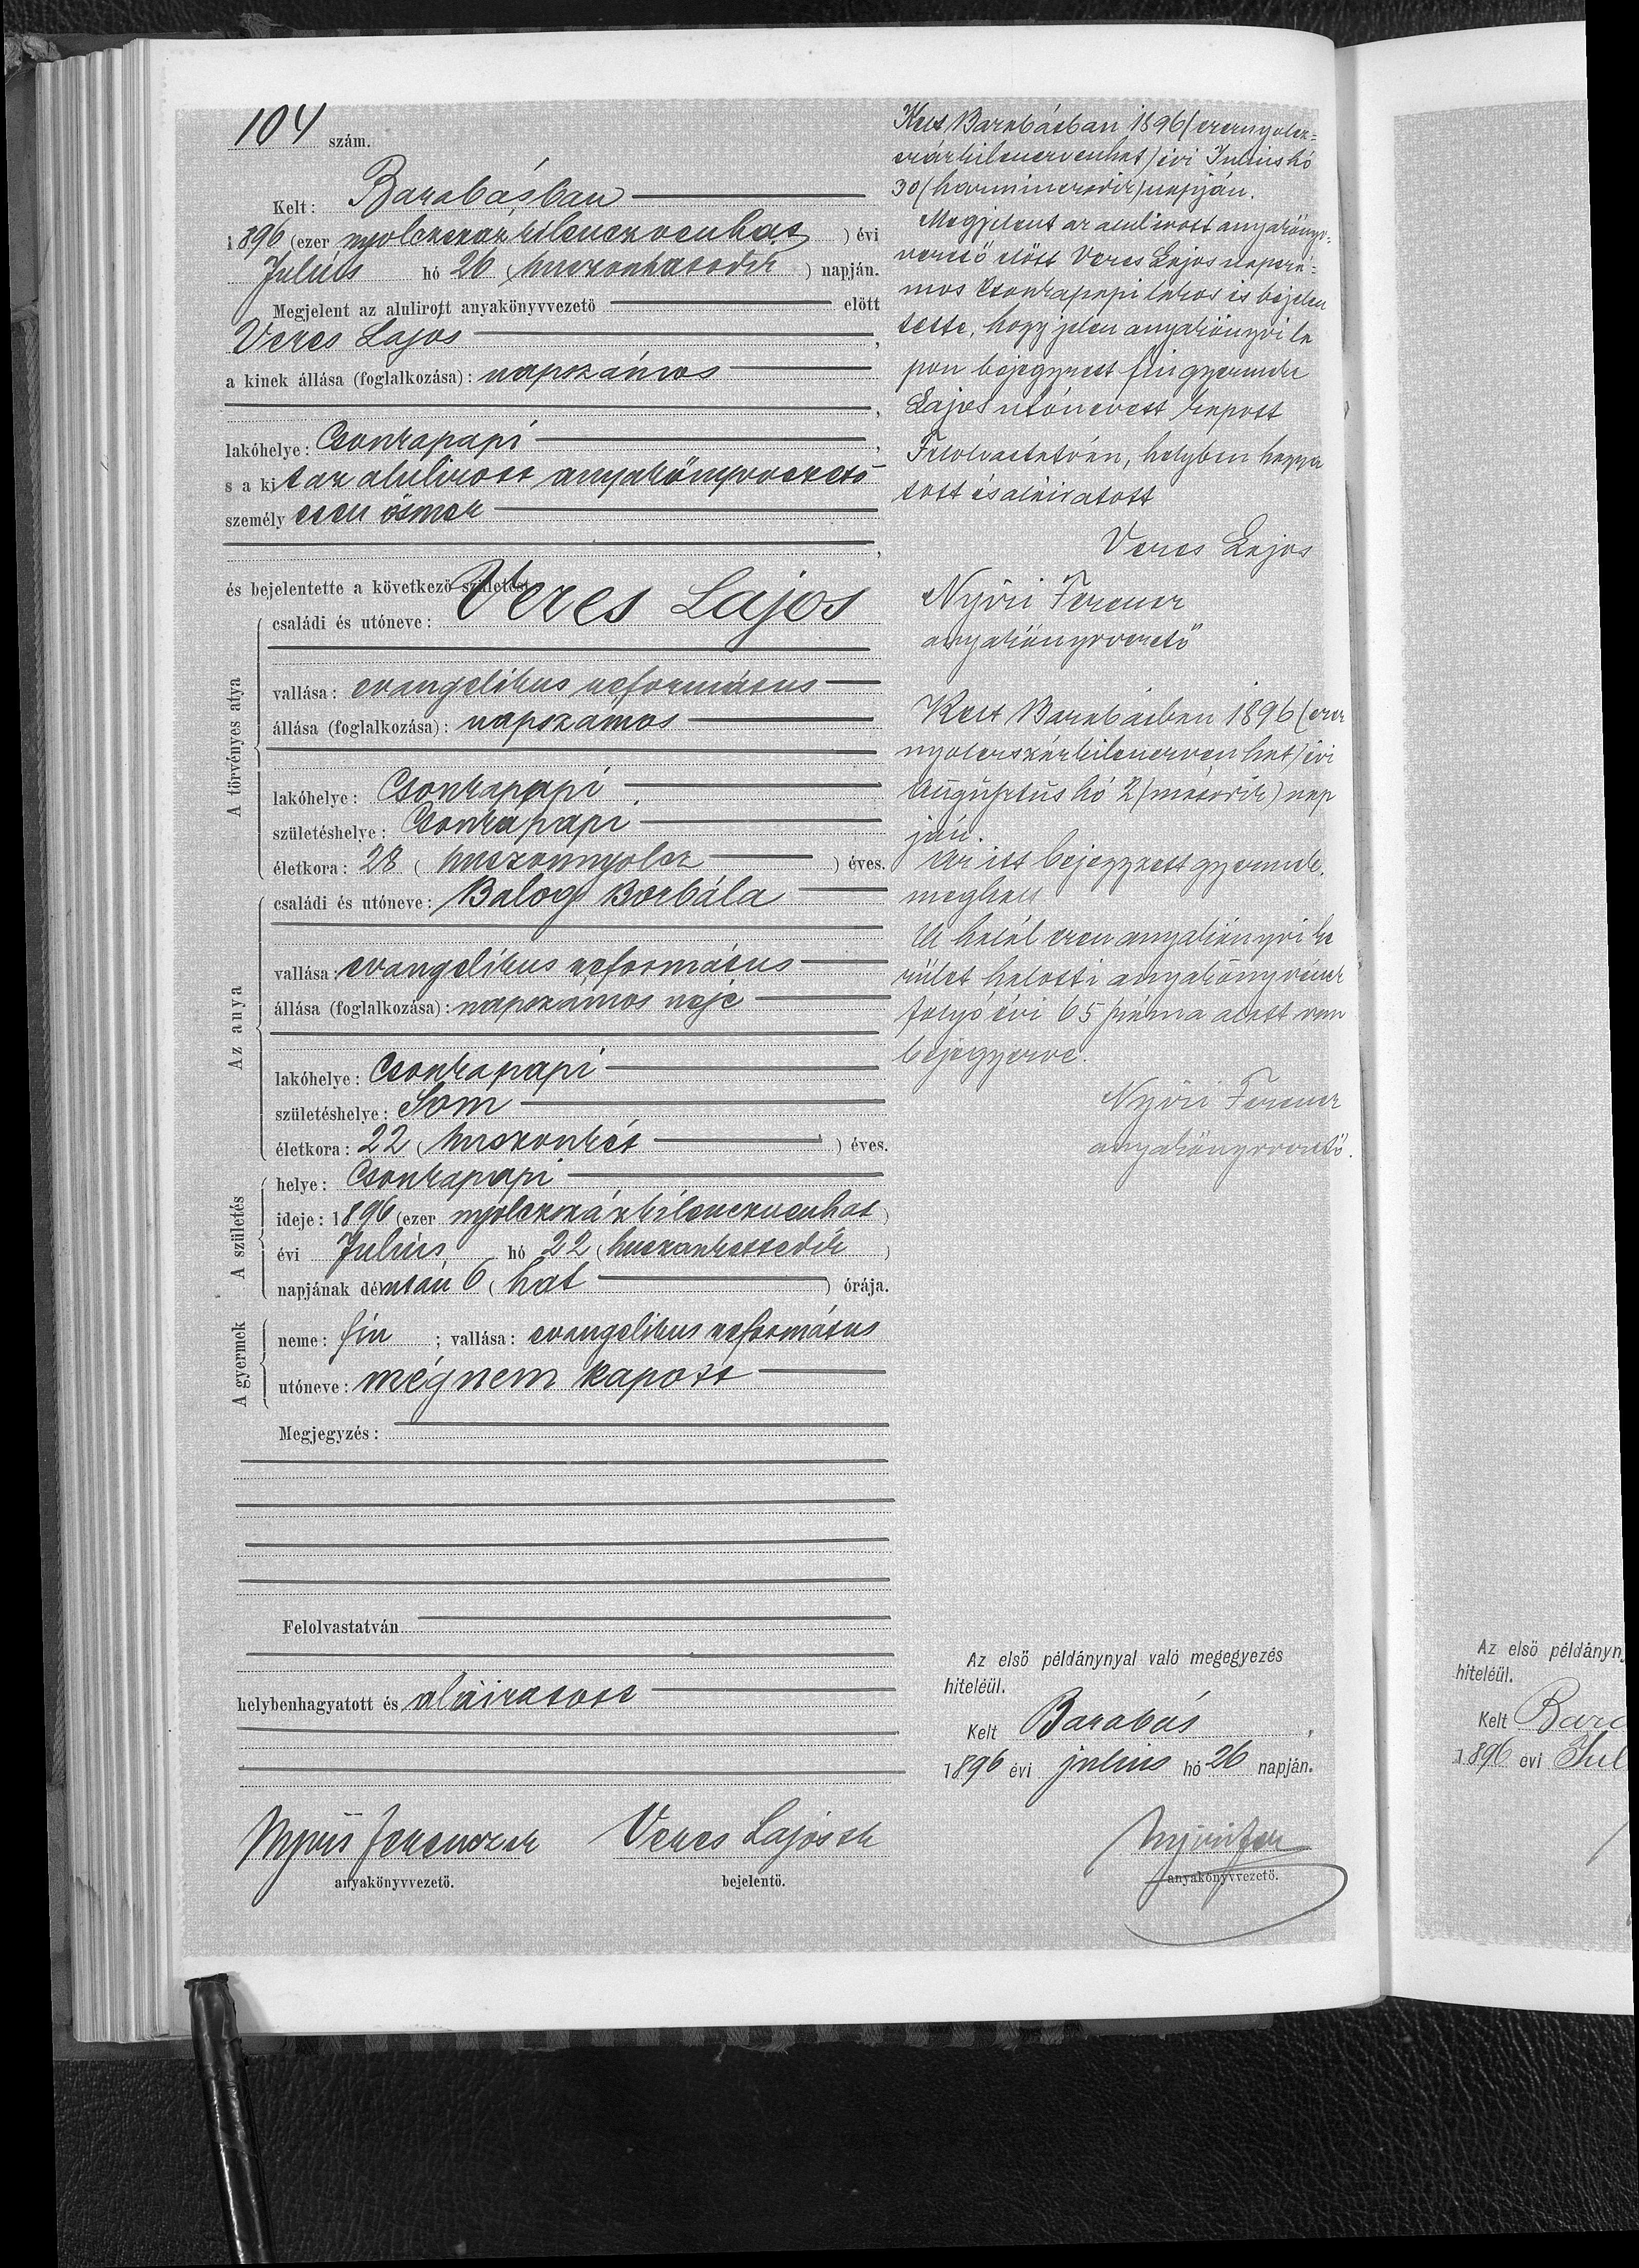 104 szám.
Kelt: Barabásban
1896 (ezer nyolczszázkilenczvenhat) évi
Julius hó 26 (huszonhatodik) napján.
Megjelent az alulirott anyakönyvvezető előtt
Veres Lajos,
a kinek állása (foglalkozása): napszámos
lakóhelye: Csonkapapi,
s a kit az alulirott anyakönyvvezető
személyesen ösmer,
és bejelentette a következő születést:
A törvényes atya
családi és utóneve: Veres Lajos
vallása: evangelikus református
állása (foglalkozása): napszámos
lakóhelye: Csonkapapi
születéshelye: Csonkapapi
életkora: 28 (huszonnyolcz) éves.
Az anya
családi és utóneve: Balog Borbála
vallása: evangelikus református
állása (foglalkozása): napszámos neje
lakóhelye: Csonkapapi
születéshelye: Som
életkora: 22 (huszonkét) éves.
A születés
helye: Csonkapapi
ideje: 1896 (ezer nyolczszázkilenczvenhat)
évi Julius hó 22 (huszonkettedik)
napjának délután 6 (hat) órája.
A gyermek
neme: fiu; vallása: evangelikus református
utóneve: mégnem kapott
Megjegyzés:
Felolvastatván
helybenhagyatott és aláiratott
Nyíri Ferenczek
anyakönyvvezető.
Veres Lajos sk
bejelentő.
Kelt Barabásban 1896 (ezernyolcz=
százkilenczvenhat) évi Julius hó
30 (harminczadik) napján.
Megjelent az alulirott anyakönyv=
vezető előtt Veres Lajos napszá=
mos Csonkapapi lakos és bejelen
tette, hogy jelen anyakönyvi la
pon bejegyzett fiu gyermeke
Lajos utónevet kapott
Felolvastatván, helyben hagya
tott és aláiratott
Veres Lajos
Nyíri Ferencz
anyakönyvvezető
Kelt Barabásban 1896 (ezer
nyolczszázkilenczvenhat) évi
Augusztus hó 2 (második) nap
ján.
Az itt bejegyzett gyermek
meghalt
A halál ezen anyakönyvi ke
rület halotti anyakönyvének
folyó évi 65 száma alatt van
bejegyezve.
Nyíri Ferencz
anyakönyvvezető.
Az első példánynyal való megegyezés
hiteléül.
Kelt Barabás,
1896 évi julius hó 26 napján.
Nyíri Fer
anyakönyvvezető.
Az első példányn
hiteléül.
Kelt Bara
1896 évi Jul